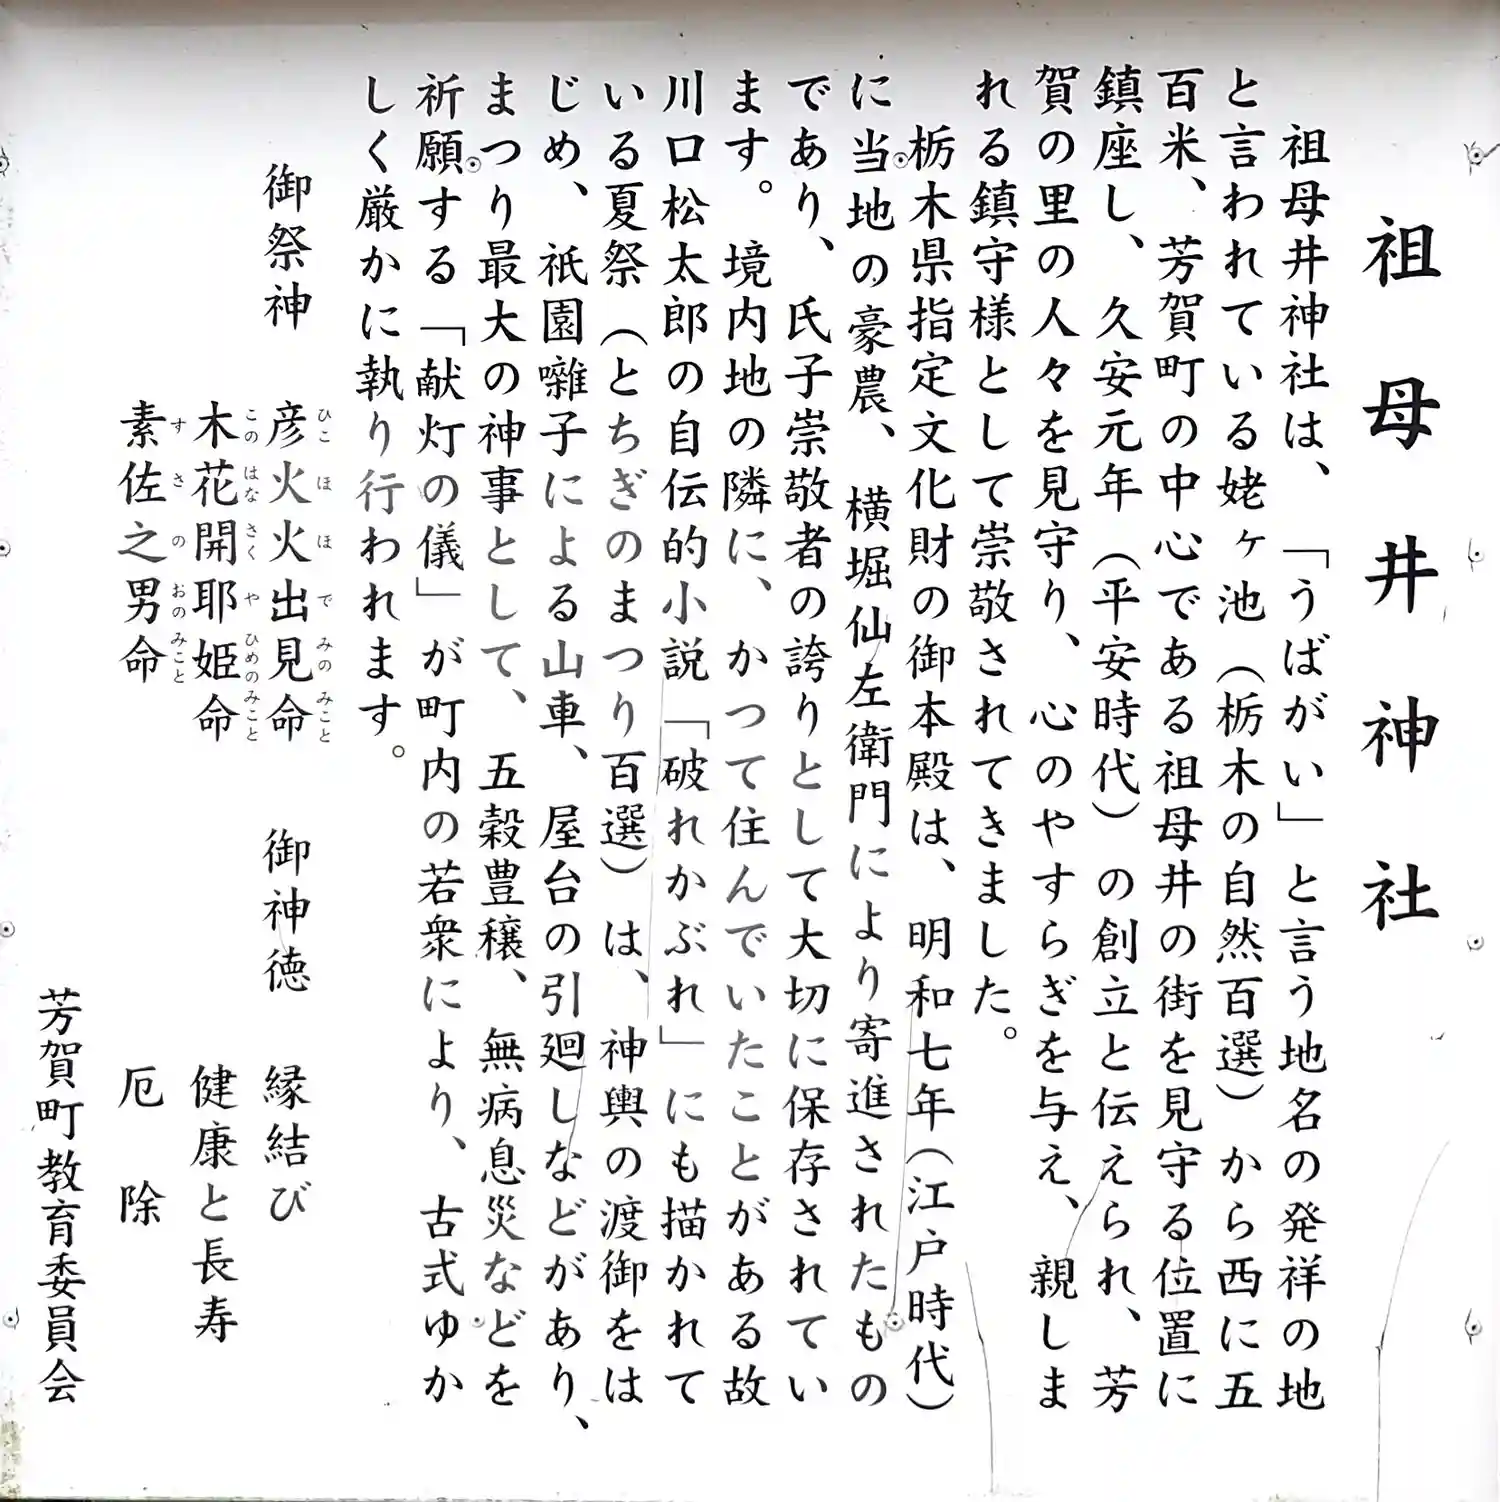 祖母井神社
祖母井神社は、「うばがい」と言う地名の発祥の地
と言われている姥ヶ池（栃木の自然百選）から西に五
百米、芳賀町の中心である祖母井の街を見守る位置に
鎮座し、久安元年（平安時代）の創立と伝えられ、芳
賀の里の人々を見守り、心のやすらぎを与え、親しま
れる鎮守様として崇敬されてきました。
栃木県指定文化財の御本殿は、明和七年（江戸時代）
に当地の豪農、横堀仙左衛門により寄進されたもの
であり、氏子崇敬者の誇りとして大切に保存されてい
ます。境内地の隣に、かつて住んでいたことがある故
川口松太郎の自伝的小説「破れかぶれ」にも描かれて
いる夏祭（とちぎのまつり百選）は、神輿の渡御をは
じめ、祇園囃子による山車、屋台の引廻しなどがあり、
まつり最大の神事として、五穀豊穣、無病息災などを
祈願する「献灯の儀」が町内の若衆により、古式ゆか
しく厳かに執り行われます。
御祭神　彦火火出見命　御神徳　縁結び
ひこほほでみのみこと
木花開耶姫命　健康と長寿
このはなさくやひめのみこと
素佐之男命　厄除
すさのおのみこと
芳賀町教育委員会